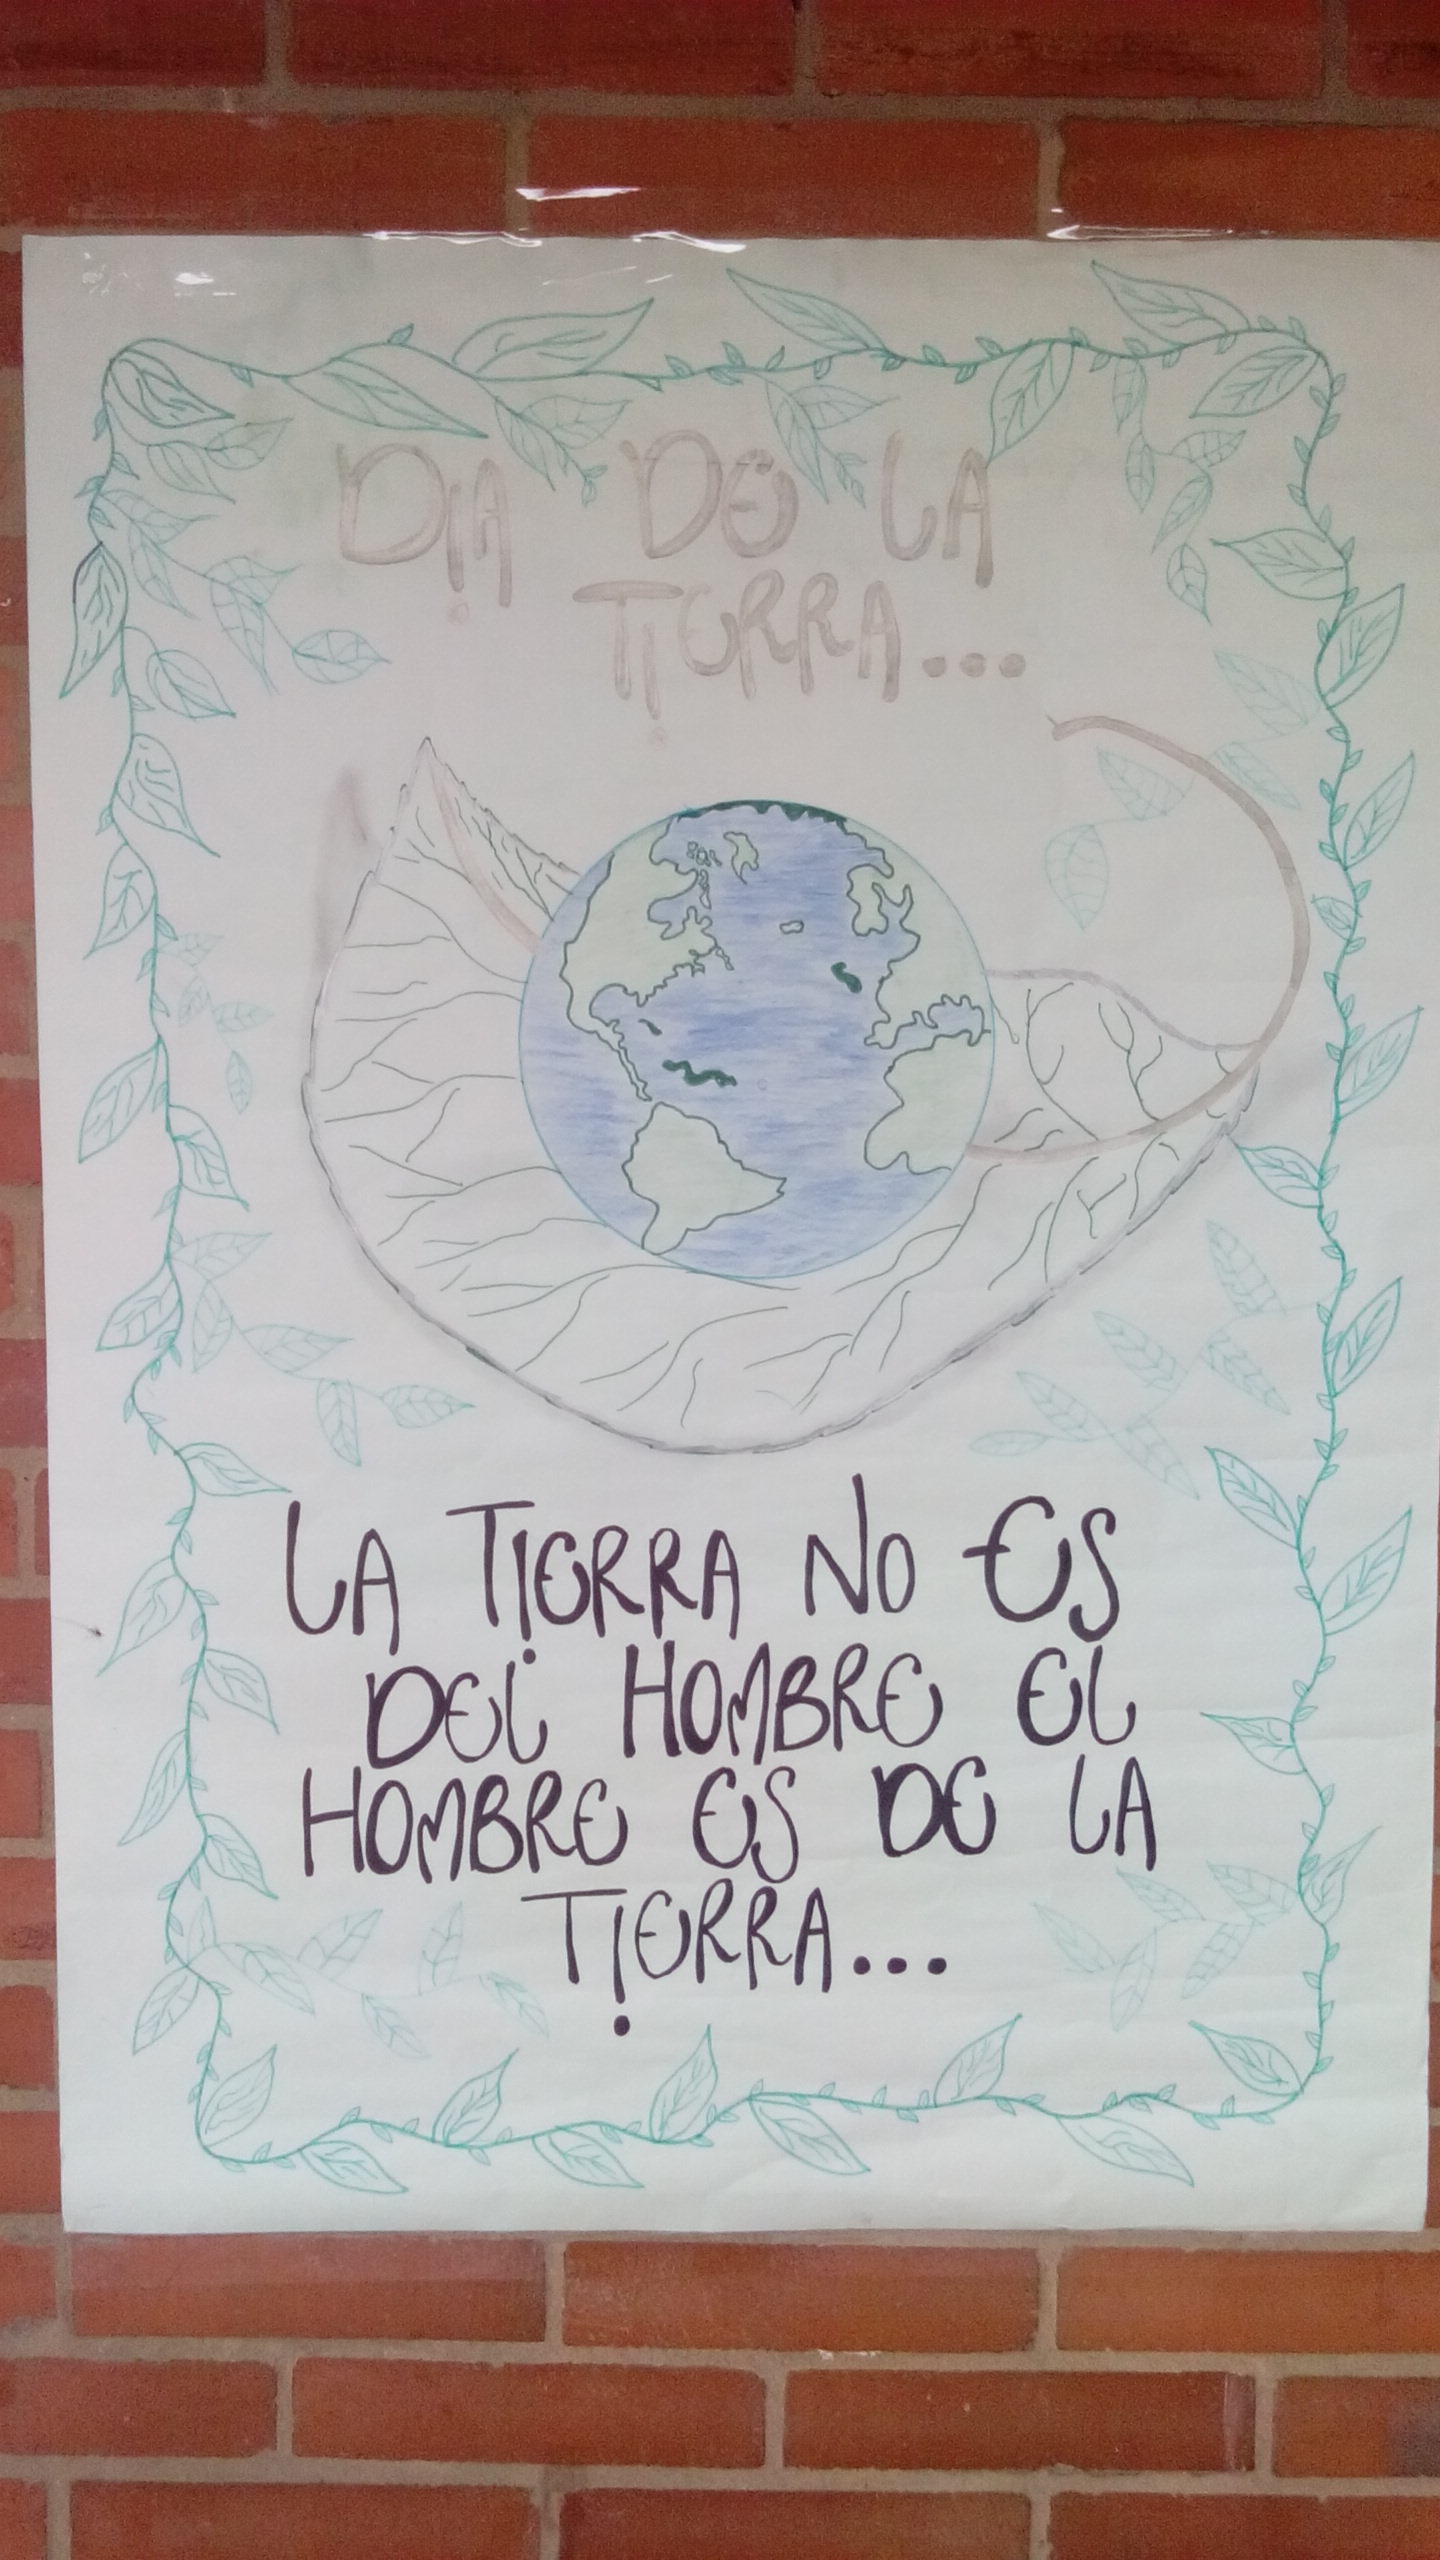 DIA DE LA
TIERRA...
LA TIERRA NO ES
DEL HOMBRE EL
HOMBRE ES DE LA
TIERRA...